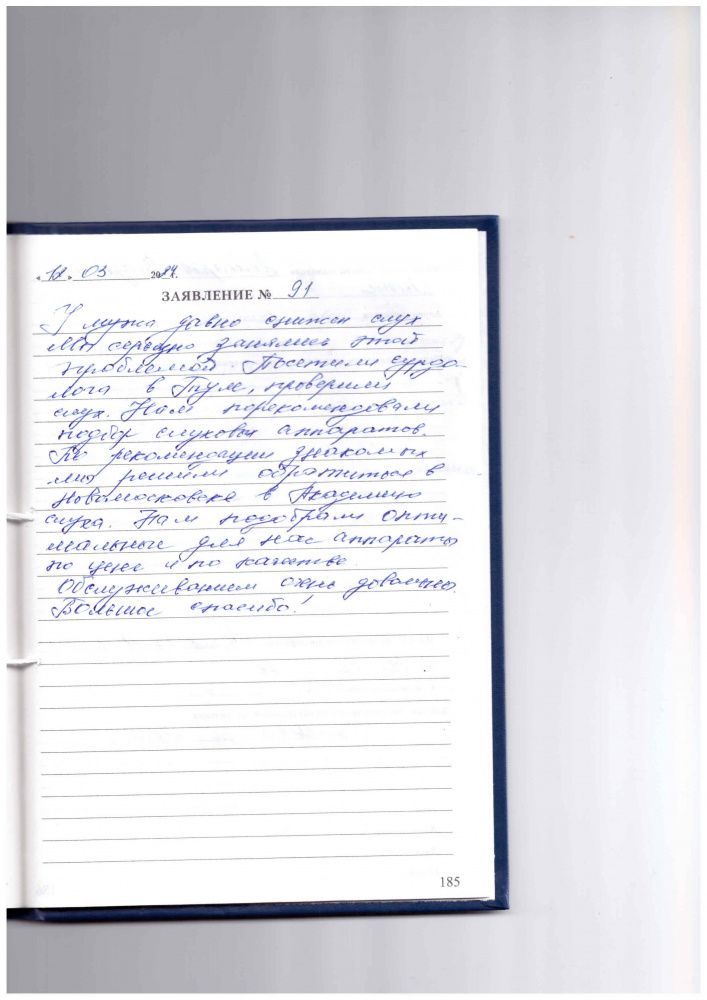 «12» 03 2024 г.
ЗАЯВЛЕНИЕ № 91
У мужа давно снижен слух
Мы серьезно занялись этой
проблемой. Посетили сурдо-
лога в Туле, проверили
слух. Нам порекомендовали
подбор слуховых аппаратов.
По рекомендации знакомых
мы решили обратиться в
Новомосковске в Академию
слуха. Нам подобрали опти-
мальные для нас аппараты
по цене и по качестве.
Обслуживанием очень довольны.
Большое спасибо!
185